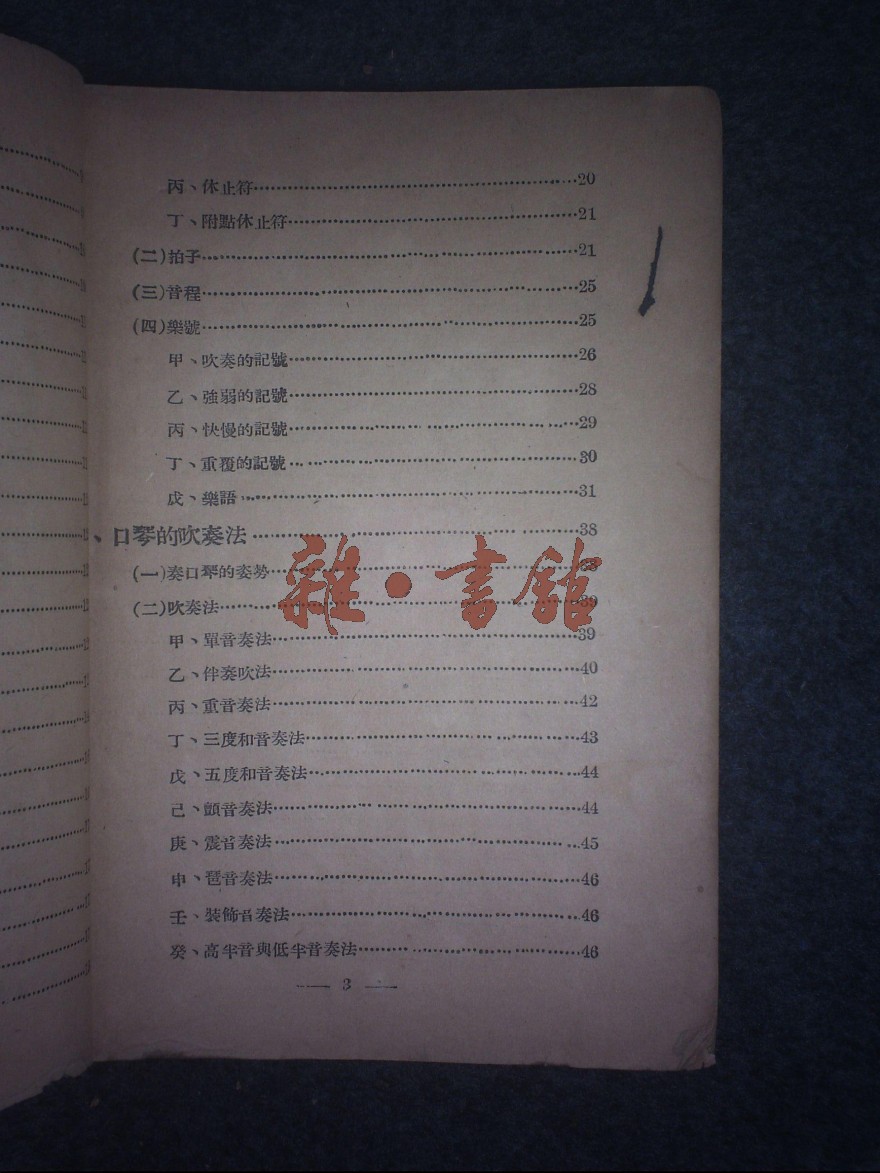 丙、休止符……20
丁、附點休止符……21
(二)拍子……21
(三)音程……25
(四)樂號……25
甲、吹奏的記號……26
乙、強弱的記號……28
丙、快慢的記號……29
丁、重覆的記號……30
戊、樂語……31
、口琴的吹奏法……38
(一)奏口琴的姿勢……38
(二)吹奏法……39
甲、單音奏法……39
乙、伴奏吹法……40
丙、重音奏法……42
丁、三度和音奏法……43
戊、五度和音奏法……44
己、顫音奏法……44
庚、震音奏法……45
申、琶音奏法……46
壬、裝飾音奏法……46
癸、高半音與低半音奏法……46
— 3 —
雜·書館